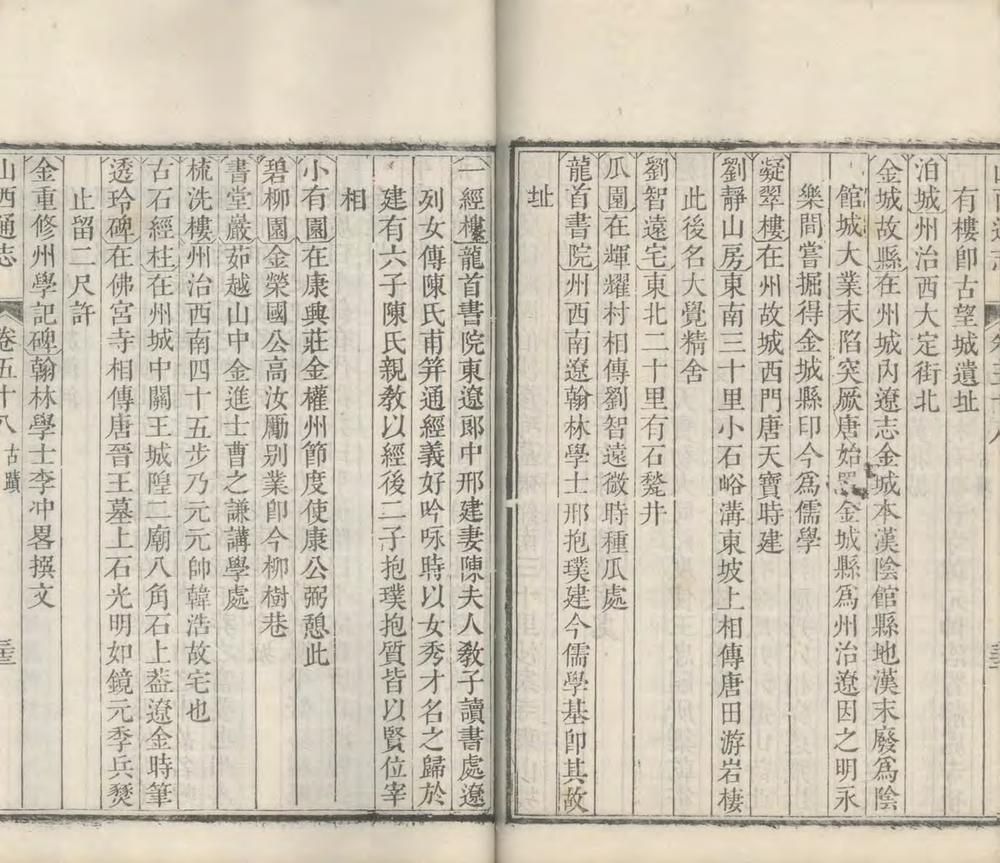 有樓卽古望城遺址
泊城州治西大定街北
金城故縣在州城內遼志金城本漢陰館縣地漢末廢爲陰
館城大業末陷突厥唐始置金城縣爲州治遼因之明永
樂間嘗掘得金城縣印今爲儒學
凝翠樓在州故城西門唐天寶時建
劉靜山房東南三十里小石峪溝東坡上相傳唐田游岩棲
此後名大覺精舍
劉智遠宅東北二十里有石甃井
瓜園在輝耀村相傳劉智遠微時種瓜處
龍首書院州西南遼翰林學士邢抱璞建今儒學基卽其故
址
一經樓龍首書院東遼郎中邢建妻陳夫人敎子讀書處遼
列女傳陳氏甫笄通經義好吟咏時以女秀才名之歸於
建有六子陳氏親敎以經後二子抱璞抱質皆以賢位宰
相
小有園在康興莊金權州節度使康公弼憩此
碧柳園金榮國公高汝勵别業卽今柳樹巷
書堂巖茹越山中金進士曹之謙講學處
梳洗樓州治西南四十五步乃元元帥韓浩故宅也
古石經柱在州城中關王城隍二廟八角石上葢遼金時筆
透玲碑在佛宮寺相傳唐晉王墓上石光明如鏡元季兵燹
止留二尺許
金重修州學記碑翰林學士李冲畧撰文
山西通志 卷五十八 古蹟